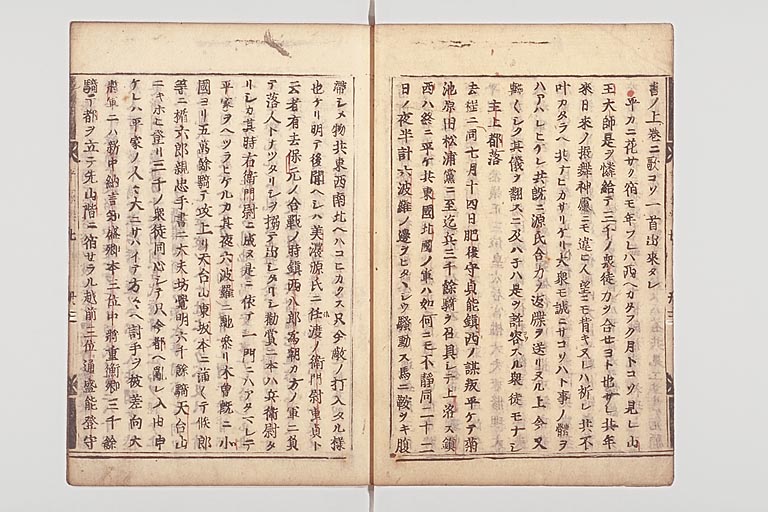 書ノ上巻ニ歌コソ一首出來タレ
平カニ花サク宿モ年フレハ西ヘカタフク月トコソ見レ山
王大師是ヲ憐給テ三千ノ衆徒力ヲ合セヨト也サレ共年
來日來ノ振舞神慮ニモ違ヒ人望ニモ背キヌレハ祈レ共不
叶カタラヘ共ナヒカサリケリ大衆モ誠ニサコソハト事ノ體ヲ
ハアハレヒケレ共既ニ源氏合力ヲ返牒ヲ送リヌル上今又
輕〻シク其儀ヲ翻スニ及ハ子ハ是ヲ許容スル衆徒モナシ
主上都落
去程ニ同七月十四日肥後守貞能鎮西ノ謀叛平ケテ菊
池原田松浦黨ニ至迄共三千餘騎ヲ召具シテ上洛ス鎮
西ハ祭ニ平ケ共東國北國ノ軍ハ如何ニモ不静同二十二
日ノ夜半計六波羅ノ邊ヲヒタヽシウ騒動ス馬ニ鞍ヲキ腹
帶シメ物共東西南北ヘハコヒカクス只今敵ノ打入タル様
也ケリ明テ後聞ヘシハ美濃源氏ニ佐渡ノ衛門尉重貞ト
云者有去保元ノ合戰ノ時鎮西八郎爲朝カ方ノ軍ニ負
テ落人トナツタリシヲ搦テ出シタリシ勸賞ニ本ハ兵衛尉タ
リシカ其時右衛門尉ニ成ヌ是ニ依テ一門ニハアタヘテ
平家ヲヘツラヒケルカ其夜六波羅ニ馳參リ木曾既ニ小
國ヨリ五萬餘騎テ攻上リ天台山東坂本ニ滿〻テ候郎
等ニ楯六郎親忠手書ニ大夫坊覺明六千餘騎天台山
ニキホヒ登リ三千ノ衆徒同心シテ只今都ヘ亂レ入由申
ケレハ平家ノ人々大ニサハイテ方々ヘ討手ヲ被差向大
將軍ニハ新中納言知盛卿本三位中將重衡卿三千餘
騎テ都ヲ立テ先山階ニ宿サラル越前三位通盛能登守